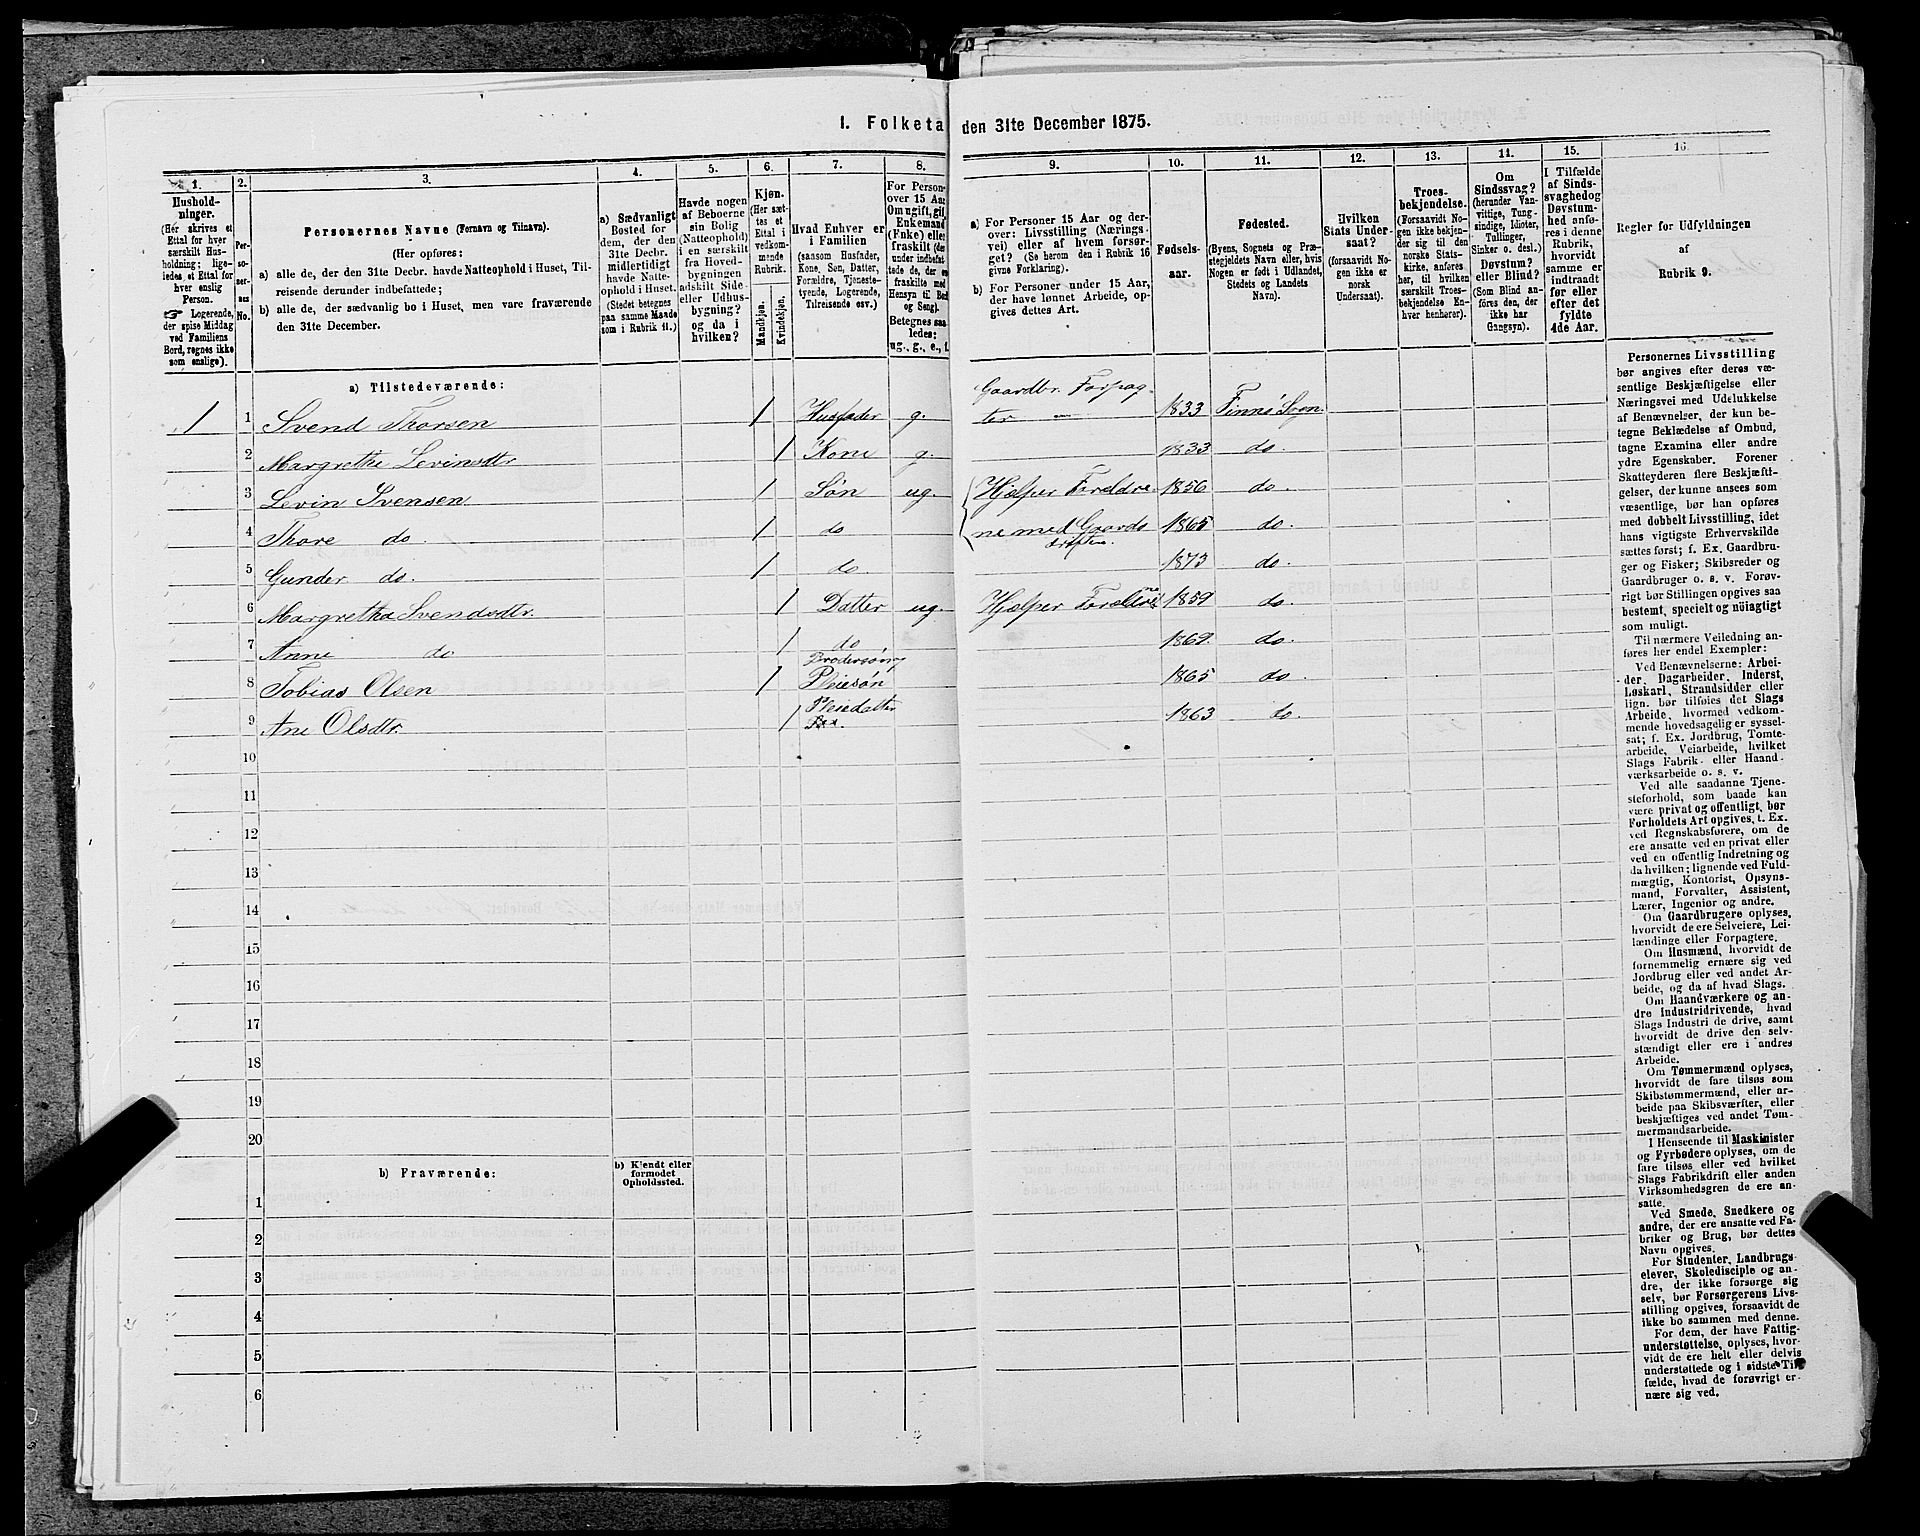 1. Folketa den 31te December 1875.
1. 2. 3. 4. 5. 6. 7. 8. 9. 10. 11. 12. 13. 14. 15. 16.
Hushold-
ninger.
(Her skrives et
Ettal for hver
særskilt Hus-
holdning; lige-
ledes et Ettal for
hver enslig
Person.
☞ Logerende,
der spise Middag
ved Familiens
Bord, regnes ikke
som enslige).
Per-
so-
ner-
nes
No.
Personernes Navne (Fornavn og Tilnavn).
(Her opføres:
a) alle de, der den 31te Decbr. havde Natteophold i Huset, Til-
reisende derunder indbefattede;
b) alle de, der sædvanlig bo i Huset, men vare fraværende
den 31te December.
a) Sædvanligt
Bosted for
dem, der den
31te Decbr.
midlertidigt
havde Natte-
ophold i Huset.
(Stedet betegnes
paa samme Maade
som i Rubrik 11.)
Havde nogen
af Beboerne
sin Bolig
(Natteophold)
i en særskilt
fra Hoved-
bygningen
adskilt Side-
eller Udhus-
bygning?
og da i
hvilken?
Kjøn.
(Her sæt-
tes et
Ettal i
vedkom-
mende
Rubrik.
Mandkjøn.
Kvindekjøn.
Hvad Enhver er
i Familien
(saasom Husfader,
Kone, Søn, Datter,
Forældre, Tjeneste-
tyende, Logerende,
Tilreisende osv.)
For Person-
over 15 Aar
Om ugift, gift,
Enkemand
(Enke) eller
fraskilt (de
under indbefat-
tede de, der ere
fraskilte med
Hensyn til Bord
og Seng).
Betegnes saa
ledes:
ug., g., e., f.
a) For Personer 15 Aar og der-
over: Livsstilling (Nærings-
vei) eller af hvem forsør-
get? (Se herom den i Rubrik 16
givne Forklaring).
b) For Personer under 15 Aar,
der have lønnet Arbeide, op-
gives dettes Art.
Fødsels-
aar.
Fødested.
(Byens, Sognets og Præ-
stegjeldets Navn eller, hvis
Nogen er født i Udlandet,
Stedets og Landets
Navn).
Hvilken
Stats Under-
saat?
(forsaavidt No-
gen ikke er
norsk
Undersaat).
Troes-
bekjendelse.
(Forsaavidt No-
gen ikke bekjen-
der sig til den
norske Stats-
kirke, anføres
her, til hvilken
særskilt Troes-
bekjendelse En-
hver henhører).
Om
Sindssvag?
(herunder Van-
vittige, Tung-
sindige, Idioter,
Tullinger,
Sinker o. desl.)
Døvstum?
eller Blind?
(Som Blind an-
føres den, der
ikke har
Gangsyn).
I Tilfælde
af Sinds-
svaghed og
Døvstum-
hed anfø-
res i denne
Rubrik,
hvorvidt
samme er
indtraadt
før eller
efter det
fyldte
4de Aar.
Regler for Udfyldningen
af
Rubrik 9.
a) Tilstedeværende:
Gaardbr. Forpag-
1 1 Svend Thorsen 1 Husfader g. ter 1833 Finnö Sogn
2 Margrethe Levinsdtr 1 Kone g. 1833 do.
3 Levin Svensen 1 Søn ug. Hjælper Foreldre 1856 do.
4 Thore do. 1 do ne med Gaards 1865 do.
driften.
5 Gunder do. 1 do. 1873 do.
6 Margretha Svendsdtr. 1 Datter ug. Hjælper Foreldrene 1859 do.
7 Anne do 1 do 1869. do.
Brodersøn
8 Tobias Olsen 1 Pleiesøn 1865 do.
Pleiedatter
9 Ane Olsdtr. 1 1863 do.
10
11
12
13
14
15
16
17
18
19
20
b) Fraværende:
b) Kjendt eller
formodet
Opholdssted.
1
2
3
4
5
6
Personernes Livsstilling
bør angives efter deres væ-
sentlige Beskjæftigelse eller
Næringsvei med Udelukkelse
af Benævnelser, der kun be-
tegne Beklædelse af Ombud,
tagne Examina eller andre
ydre Egenskaber. Forener
Skatteyderen flere Beskjæfti-
gelser, der kunne ansees som
væsentlige, bør han opføres
med dobbelt Livsstilling, idet
hans vigtigste Erhvervskilde
sættes først; f. Ex. Gaardbru-
ger og Fisker; Skibsreder og
Gaardbruger o. s. v. Forøv-
rigt bør Stillingen opgives saa
bestemt, specielt og nöiagtigt
som muligt.
Til nærmere Veiledning an-
føres her endel Exempler:
Ved Benævnelserne: Arbei-
der, Dagarbeider, Inderst,
Løskarl, Strandsidder eller
lign. bør tilføies det Slags
Arbeide, hvormed vedkom-
mende hovedsagelig er syssel-
sat; f. Ex. Jordbrug, Tomte-
arbeide, Veiarbeide, hvilket
Slags Fabrik- eller Haand-
værksarbeide o. s. v.
Ved alle saadanne Tjene-
steforhold, som baade kan
være privat og offentligt, bør
Forholdets Art opgives, t. Ex.
ved Regnskabsførere, om de
ere ansatte ved en privat eller
ved en offentlig Indretning og
da hvilken; lignende ved Fuld-
mægtig, Kontorist, Opsyns-
mand, Forvalter, Assistent,
Lærer, Ingeniør og andre.
Om Gaardbrugere oplyses,
hvorvidt de ere Selveiere, Lei-
lændinge eller Forpagtere.
Om Husmænd, hvorvidt de
fornemmelig ernære sig ved
Jordbrug eller ved andet Ar-
beide, og da af hvad Slags.
Om Haandværkere og an-
dre Industridrivende, hvad
Slags Industri de drive, samt
hvorvidt de drive den selv-
stændigt eller ere i andres
Arbeide.
Om Tømmermænd oplyses,
hvorvidt de fare tilsøs som
Skibstømmermænd, eller ar-
beide paa Skibsværfter, eller
beskjæftiges ved andet Tøm-
mermandsarbeide.
I Henseende til Maskinister
og Fyrbødere oplyses, om de
fare tilsøs eller ved hvilket
Slags Fabrikdrift eller anden
Virksomhedsgren de ere an-
satte.
Ved Smede, Snedkere og
andre, der ere ansatte ved Fa-
briker og Brug, bør dettes
Navn opgives.
For Studenter, Landbrugs-
elever, Skoledisciple og an-
dre, der ikke forsørge sig
selv, bør Forsørgerens Livs-
stilling opgives, forsaavidt de
ikke bo sammen med denne.
For dem, der have Fattig-
understøttelse, oplyses, hvor-
vidt de ere helt eller delvis
understøttede og i sidste Til-
fælde, hvad de forøvrigt er-
nære sig ved.